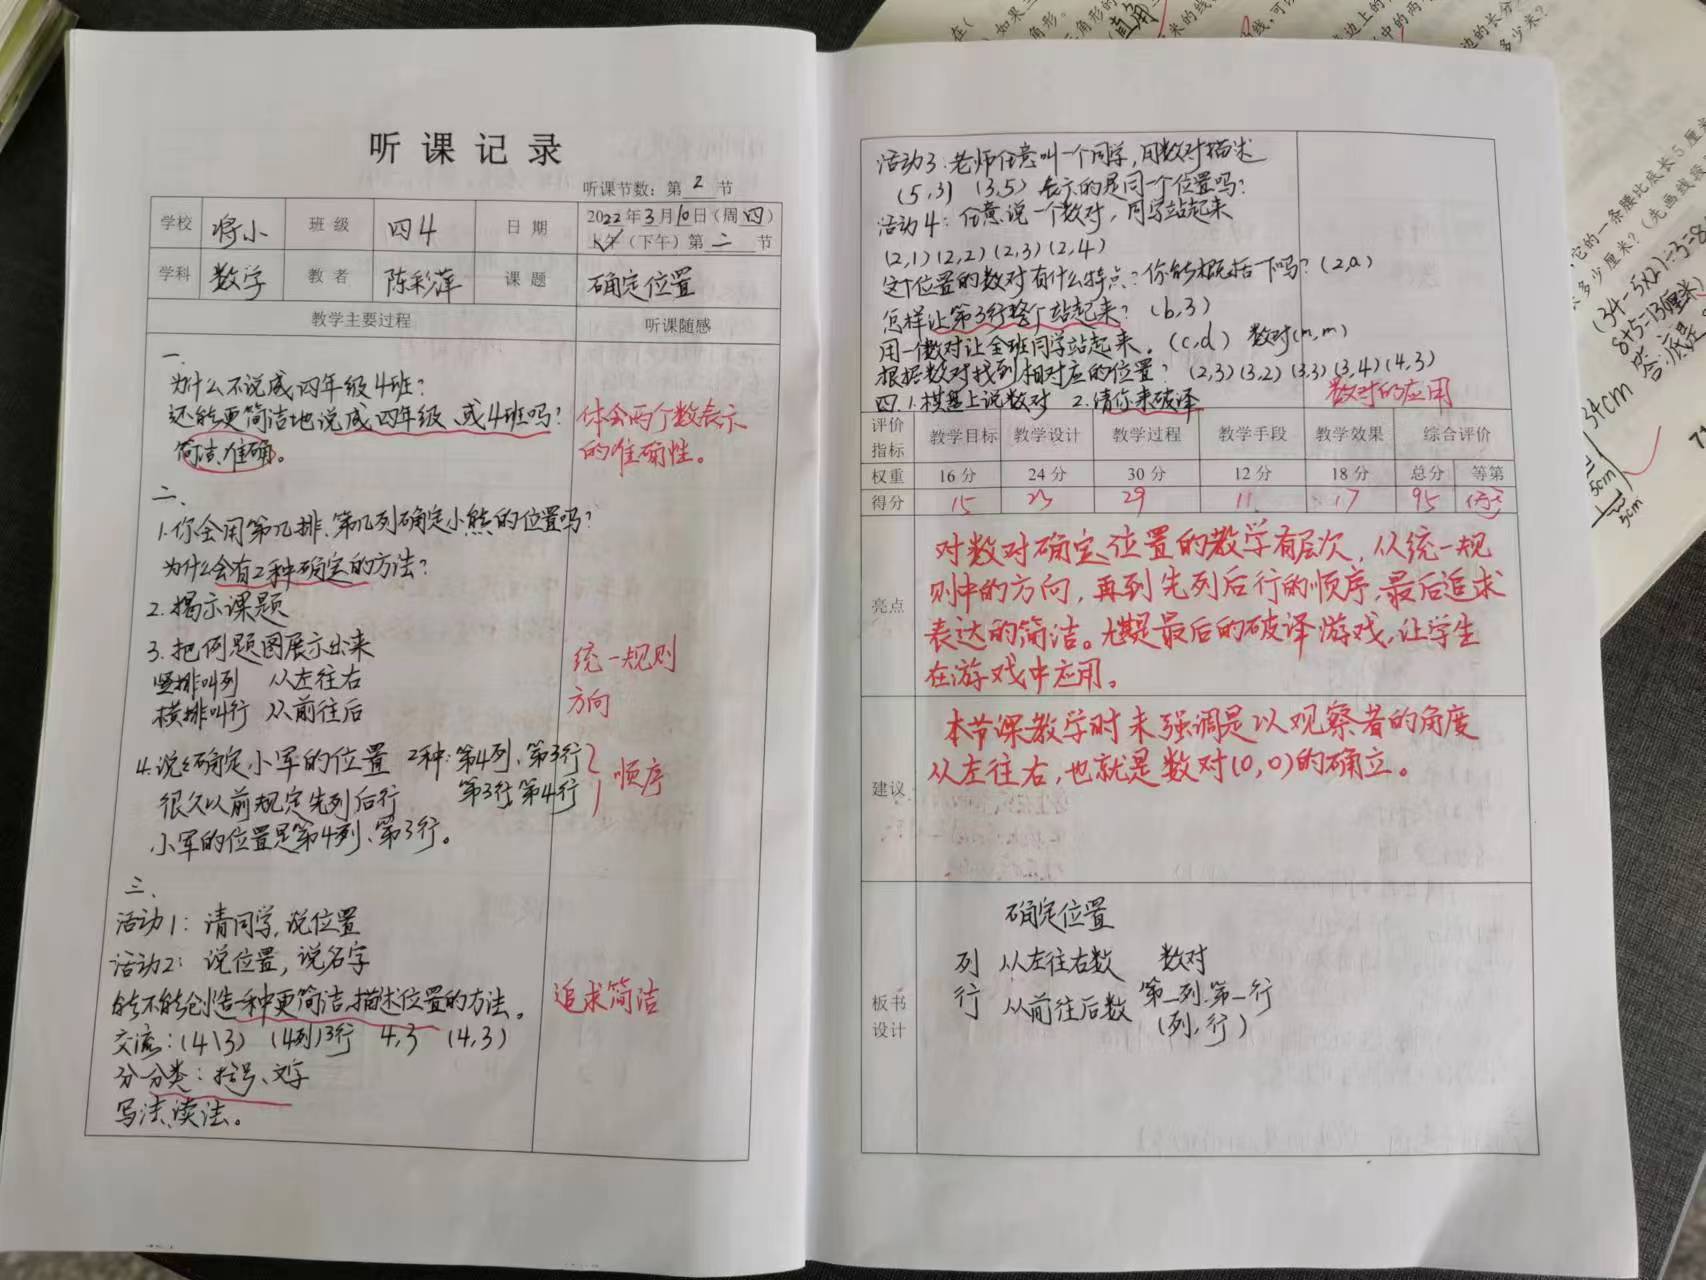 听课记录
听课节数：第 2 节
学校 将小 班级 四4 日期 2022年3月10日（周四）
上午（下午）第二节
学科 数学 教者 陈彩萍 课题 确定位置
教学主要过程 听课随感
一、
为什么不说成四年级4班？
还能更简洁地说成四年级、或4班吗？
简洁、准确。
体会两个数表示
的准确性。
二、
1.你会用第几排、第几列确定小熊的位置吗？
为什么会有2种确定的方法？
2.揭示课题
3.把例题图展示出来
竖排叫列 从左往右
横排叫行 从前往后
统一规则
方向
4.说说确定小军的位置 2种：第4列、第3行
第3行，第4行
很久以前规定先列后行
小军的位置是第4列、第3行。
顺序
三、
活动1：请同学，说位置
活动2：说位置，说名字
能不能创造一种更简洁描述位置的方法。
追求简洁
交流：(4\3) (4列)3行 4,3 (4,3)
分分类：括号、文字
写法、读法。
活动3：老师任意叫一个同学，用数对描述
(5,3) (3,5) 表示的是同一个位置吗？
活动4：任意说一个数对，同学站起来
(2,1)(2,2)(2,3)(2,4)
这个位置的数对有什么特点？你能概括一下吗？(2,a)
怎样让第3行整个站起来？(b,3)
用一个数对让全班同学站起来。(c,d) 数对(m,m)
根据数对找到相对应的位置？(2,3)(3,2)(3,3)(3,4)(4,3)
四.1.棋盘上说数对 2.请你来破译
数对的应用
评价指标 教学目标 教学设计 教学过程 教学手段 教学效果 综合评价
权重 16分 24分 30分 12分 18分 总分 等第
得分 15 23 29 11 17 95 优
亮点
对数对确定位置的教学有层次，从统一规
则中的方向，再到先列后行的顺序，最后追求
表达的简洁。尤其是最后的破译游戏，让学生
在游戏中应用。
建议
本节课教学时未强调是以观察者的角度
从左往右，也就是数对(0,0)的确立。
板书设计
确定位置
列 从左往右数 数对
行 从前往后数 第一列、第一行
(列，行)
(34-5×2)÷3=8
8+5=13(厘米)
34cm
5cm
5cm